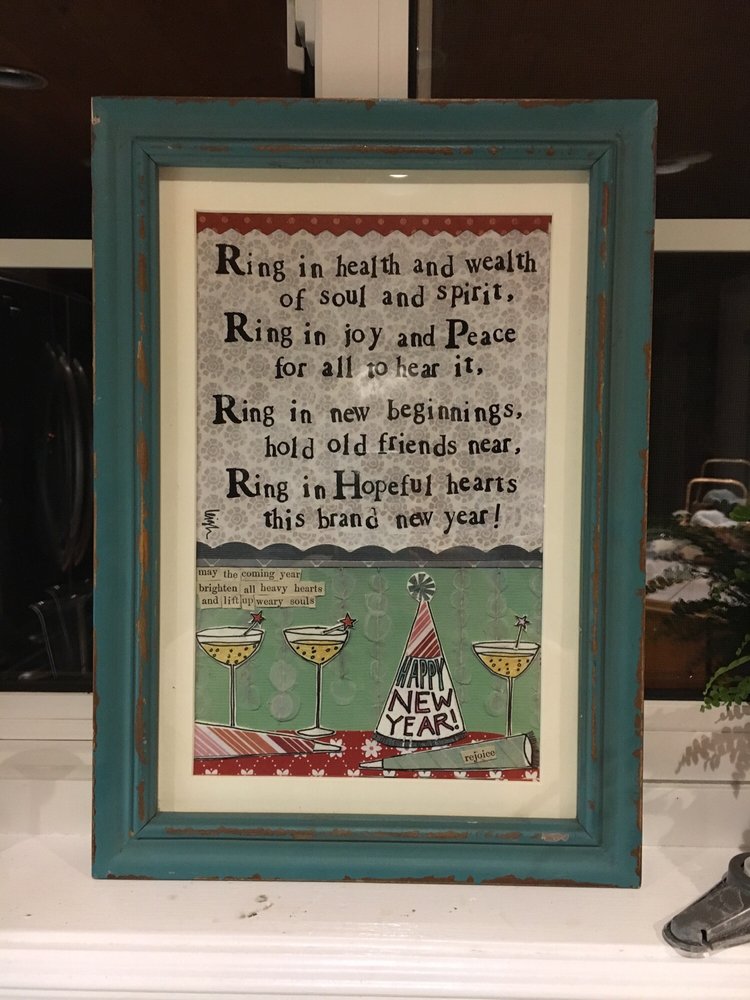 Ring in health and wealth
of soul and spirit,
Ring in joy and Peace
for all to hear it,
Ring in new beginnings,
hold old friends near,
Ring in Hopeful hearts
this brand new year!
may the coming year
brighten all heavy hearts
and lift up weary souls
HAPPY
NEW
YEAR!
rejoice